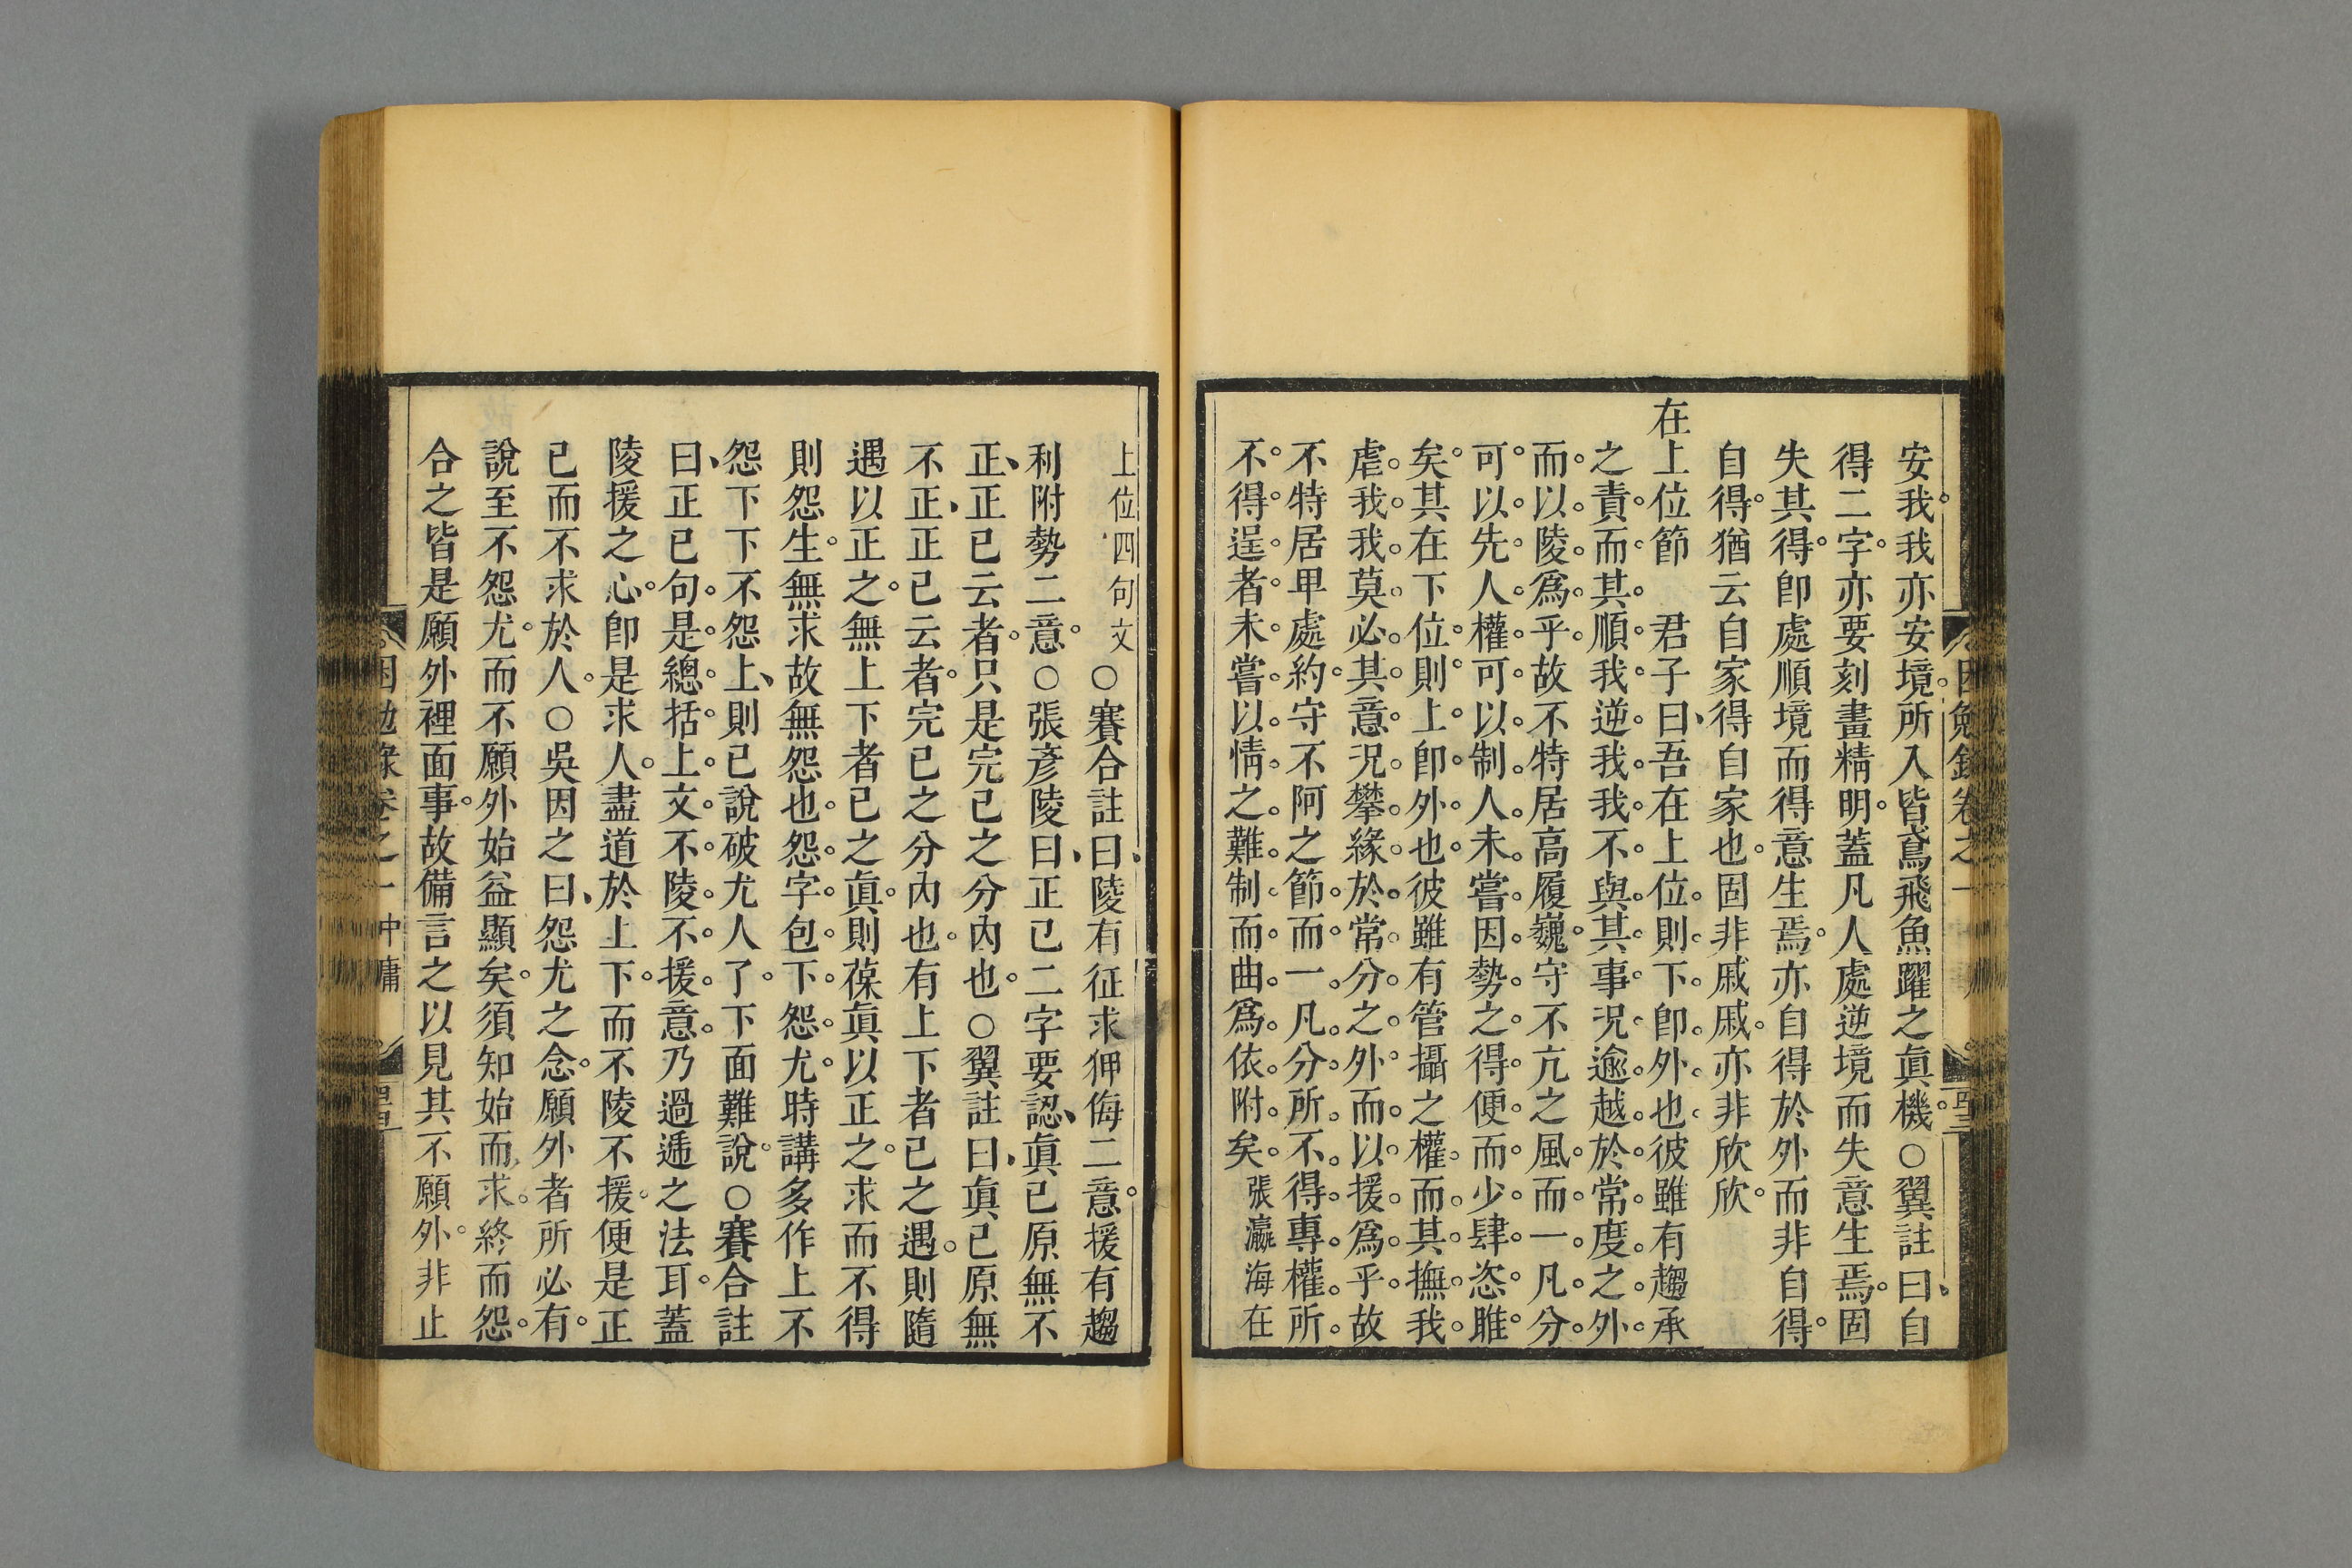 安我我亦安境所入皆鳶飛魚躍之眞機○翼註曰自
得二字亦要刻畫精明蓋凡人處逆境而失意生焉固
失其得卽處順境而得意生焉亦自得於外而非自得
自得猶云自家得自家也固非戚戚亦非欣欣
在上位節 君子曰吾在上位則下卽外也彼雖有趨承
之責而其順我逆我我不與其事況逾越於常度之外
而以陵爲乎故不特居高履巍守不亢之風而一凡分
可以先人權可以制人未嘗因勢之得便而少肆恣睢
矣其在下位則上卽外也彼雖有管攝之權而其撫我
虐我我莫必其意況攀緣於常分之外而以援爲乎故
不特居卑處約守不阿之節而一凡分所不得專權所
不得逞者未嘗以情之難制而曲爲依附矣張瀛海在
上位四句文○賽合註曰陵有征求狎侮二意援有趨
利附勢二意○張彥陵曰正己二字要認眞己原無不
正正己云者只是完己之分內也○翼註曰眞己原無
不正正己云者完己之分內也有上下者己之遇則隨
遇以正之無上下者己之眞則葆眞以正之求而不得
則怨生無求故無怨也怨字包下怨尤時講多作上不
怨下下不怨上則已說破尤人了下面難說○賽合註
曰正己句是總括上文不陵不援意乃過遞之法耳蓋
陵援之心卽是求人盡道於上下而不陵不援便是正
己而不求於人○吳因之曰怨尤之念願外者所必有
說至不怨尤而不願外始益顯矣須知始而求終而怨
合之皆是願外裡面事故備言之以見其不願外非止
困勉錄卷之一 中庸